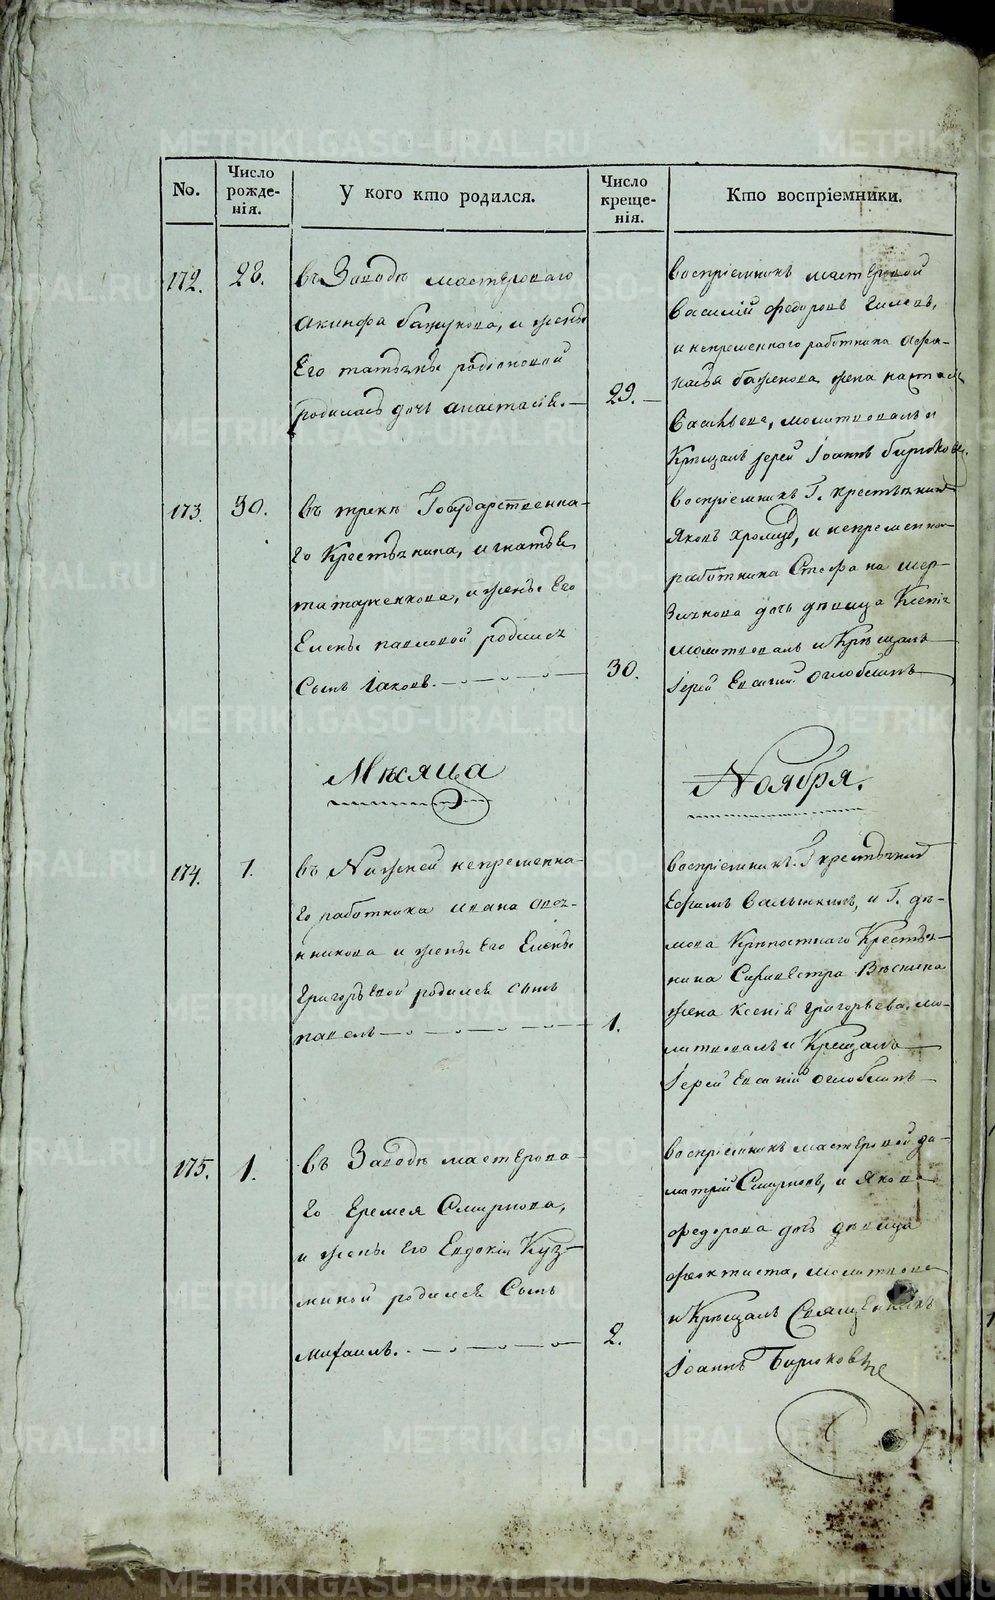 METRIKI.GASO-URAL.RU
No.
Число рожденія.
У кого кто родился.
Число крещенія.
Кто воспріемники.
172.
28.
въ Заводѣ мастероваго
Акинфа Бажукова, и жены
Его татьяны родіоновой
родилась дочь анастасія.
29.
Воспріемникъ мастеровой
Василій федоровъ Гилевъ,
и непременнаго работника афон-
насья баженова жена настась
Васильева, молитвовалъ и
Крещалъ іерей Іоаннъ бирюковъ.
173.
30.
въ трекѣ Государственна-
го Крестьянина, игнатья
татаренкова, и жены Его
Елены павловой родился
Сынъ Іаковъ.
30.
воспріемникъ Г. крестьянинъ
Яковъ и непременнаго
работника Стефана мер-
зликова дочь дѣвица Ксенія
молитвовалъ и Крещалъ
Іерей Евсигній оглоблинъ
Мѣсяца
Ноября.
174.
1.
въ Нижней непременна-
го работника ивана овеч-
нникова и жены его Елены
Григорьевой родился сынъ
павелъ
1.
воспріемникъ Г. крестьянинъ
Ефимъ и Г. дѣ-
мова Крѣпостнаго Крестья-
нина Силивестра Вяткина
жена Ксенія григорьева. мо-
литвовалъ и Крещалъ
Іерей Евсигній оглоблинъ
175.
1.
въ Заводѣ мастерова-
го Еремея Смирнова,
и жены его Евдокіи Куз-
миной родился Сынъ
михаилъ.
2.
Воспріемникъ мастеровой ди-
митрій Смирновъ, и Якова
федорова дочь дѣвица
феоктиста, молитвова
и Крещалъ Священникъ
Іоаннъ Бирюковъ